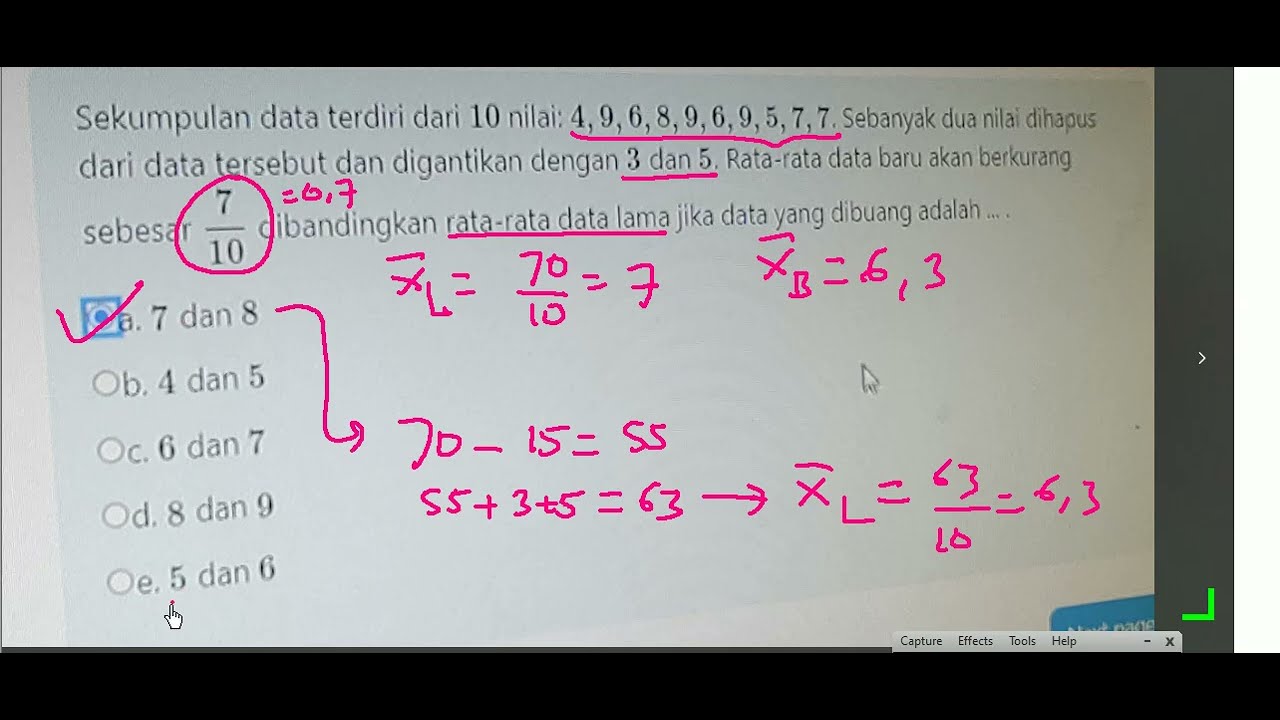 Sekumpulan data terdiri dari 10 nilai: 4, 9, 6, 8, 9, 6, 9, 5, 7, 7. Sebanyak dua nilai dihapus
dari data tersebut dan digantikan dengan 3 dan 5. Rata-rata data baru akan berkurang
= 0,7
sebesar 7/10 dibandingkan rata-rata data lama jika data yang dibuang adalah ... .
x̄L = 70/10 = 7
x̄B = 6,3
a. 7 dan 8
b. 4 dan 5
70 - 15 = 55
c. 6 dan 7
55 + 3 + 5 = 63 → x̄L = 63/10 = 6,3
d. 8 dan 9
e. 5 dan 6
Next page
Capture Effects Tools Help